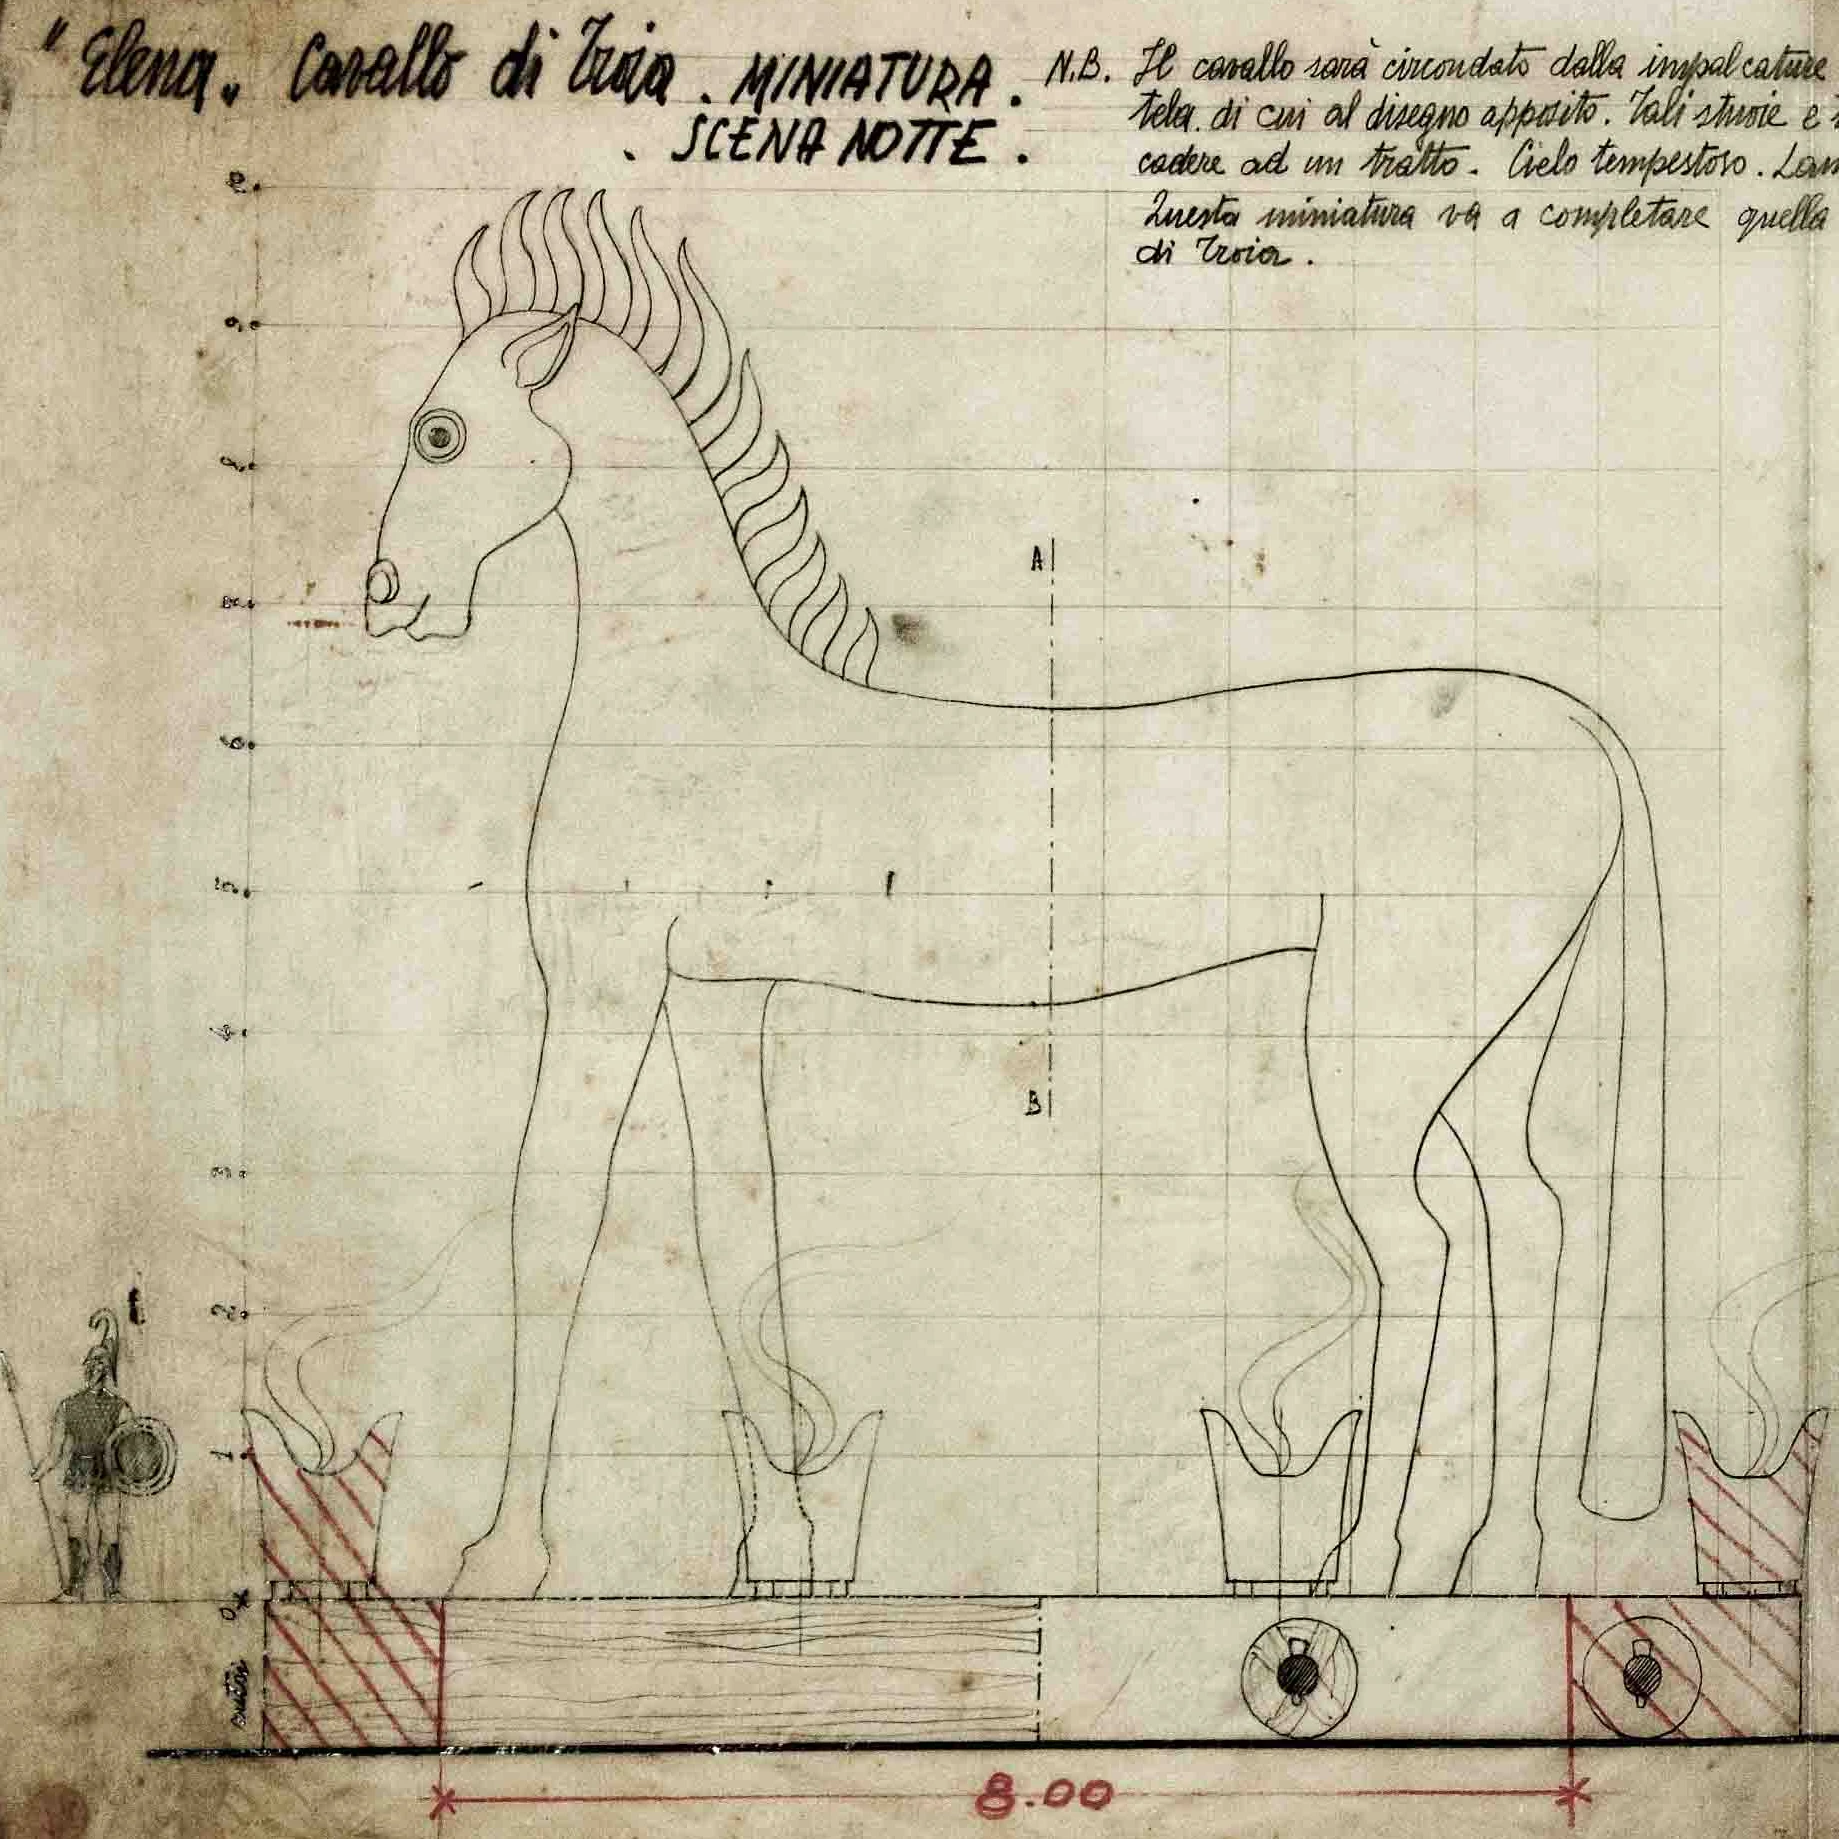 "Elena„ Cavallo di Troia . MINIATURA .
. SCENA NOTTE .
N.B. Il cavallo sarà circondato dalla impalcature
tela. di cui al disegno apposito. Tali stuoie e
cadere ad un tratto. Cielo tempestoso.
Questa miniatura va a completare quella
di Troia.
A
B
6.
4.
3.
2.
1
0
metri
8.00